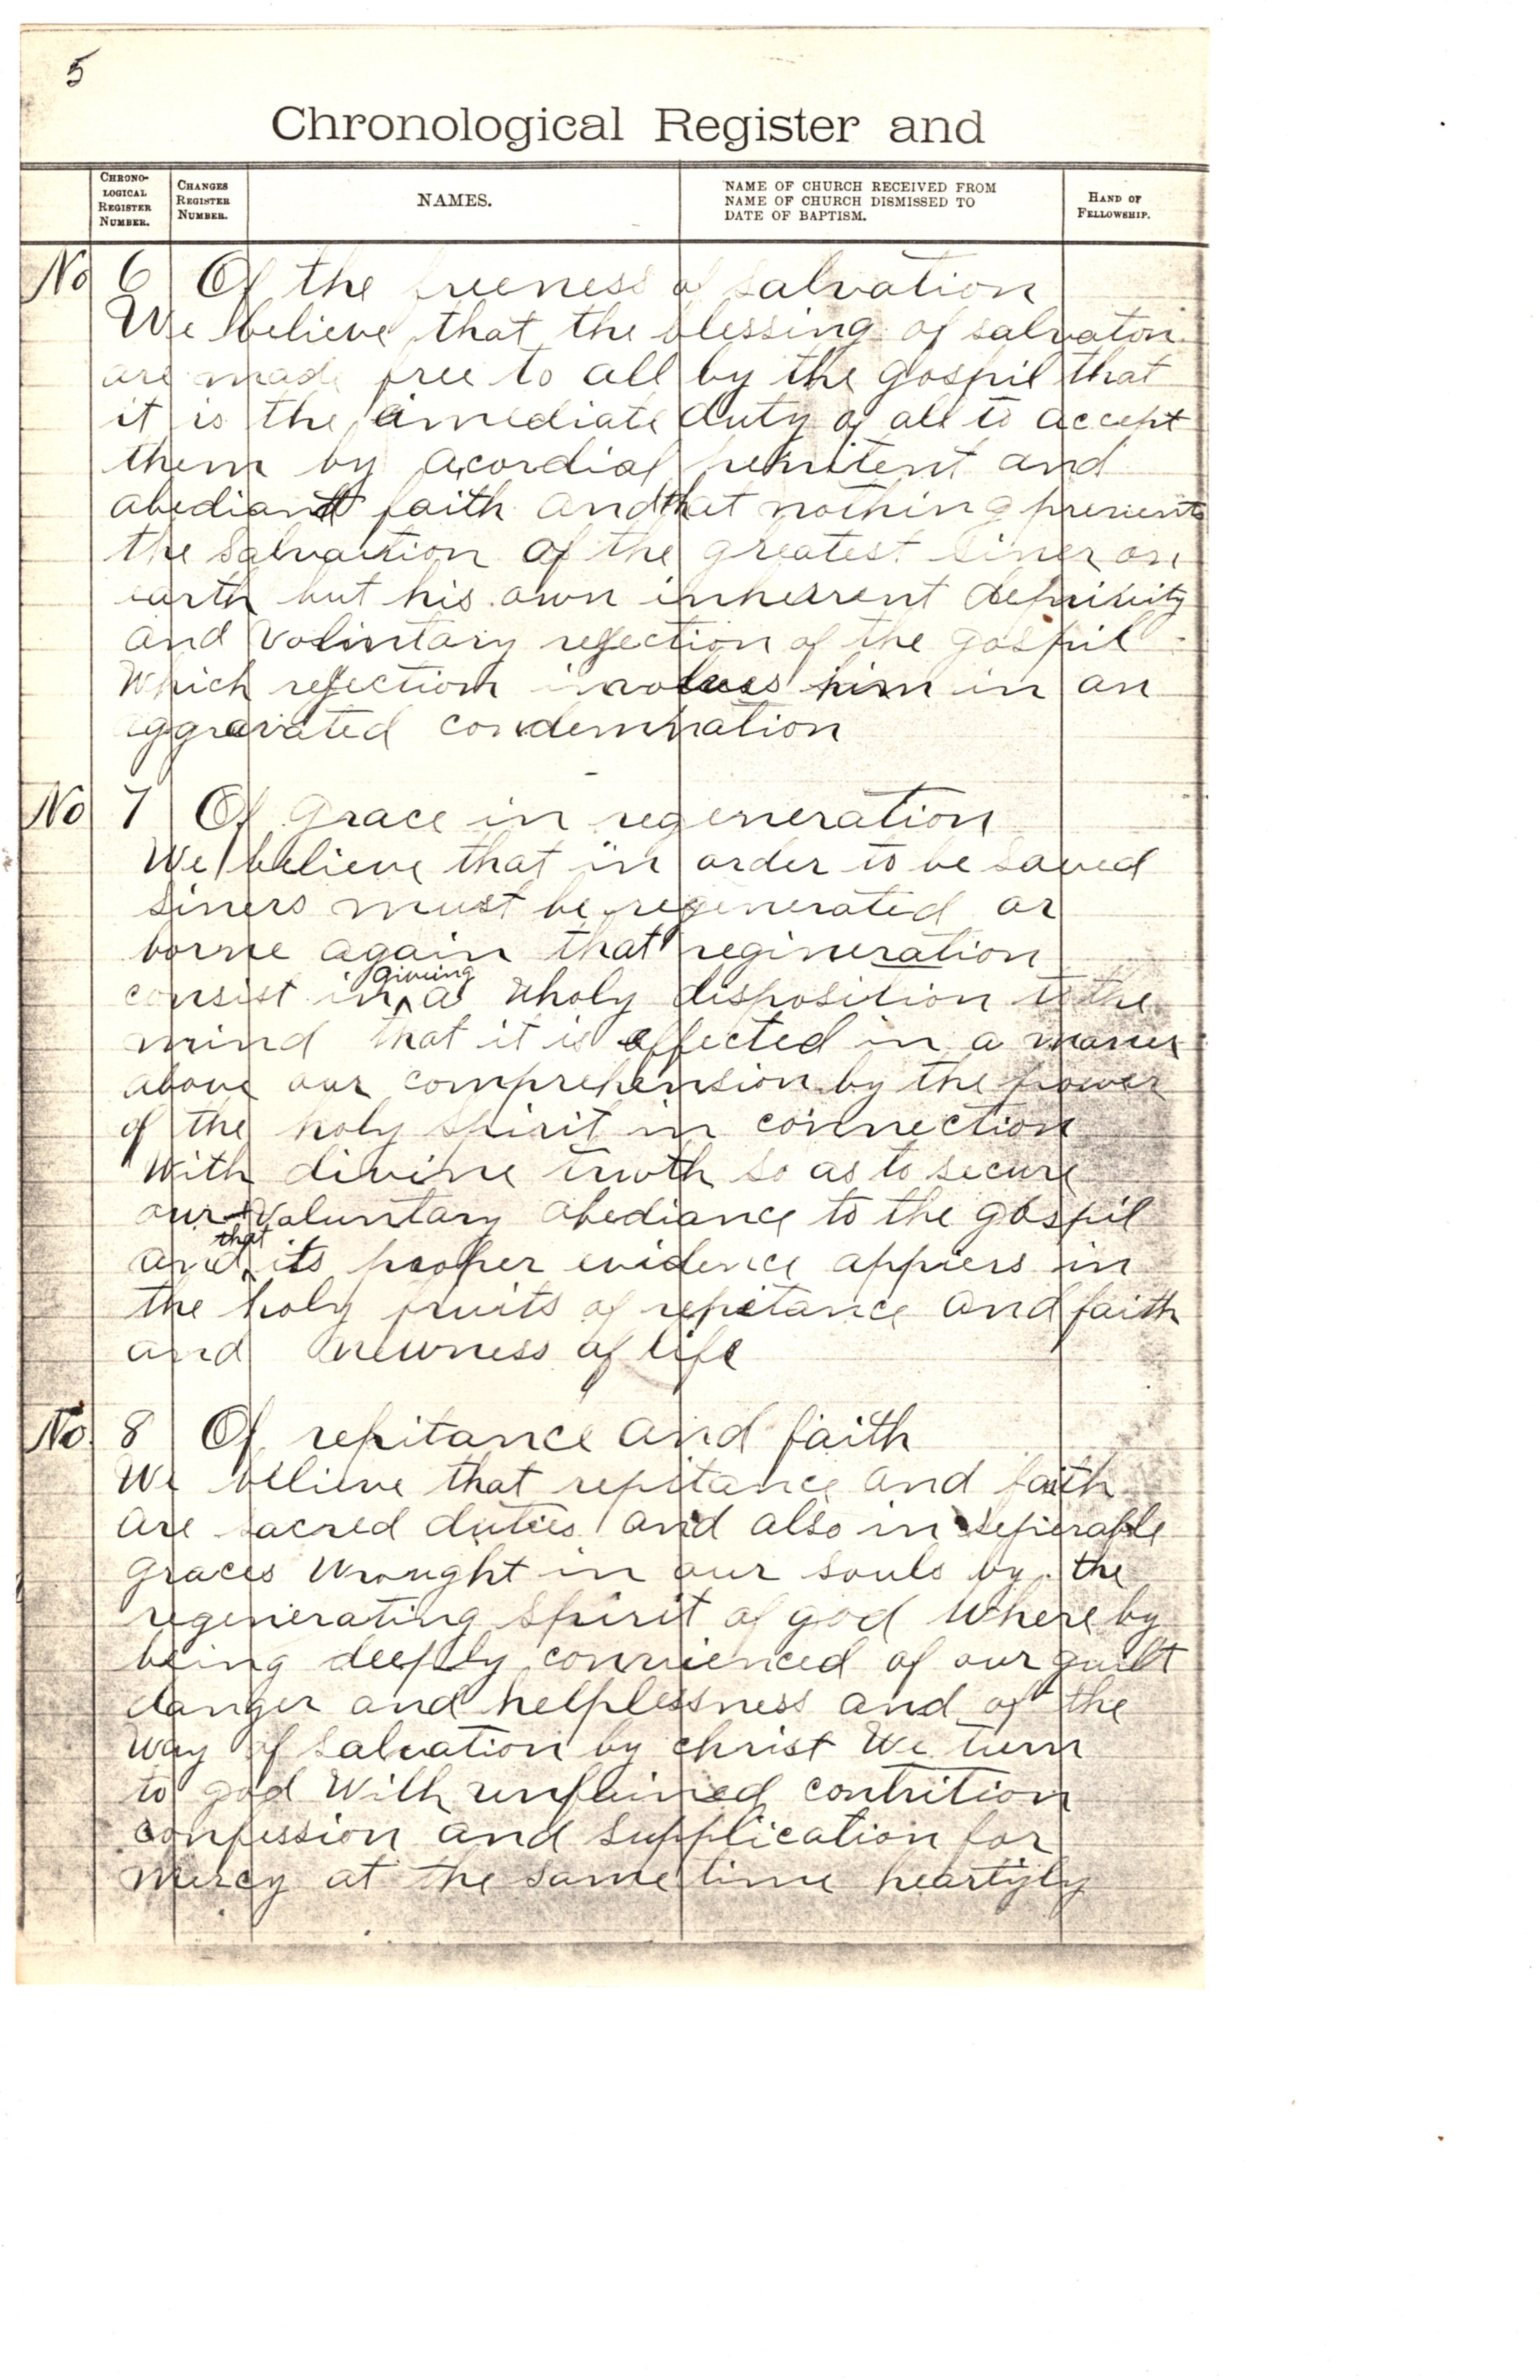 5
Chronological Register and
CHRONO-
LOGICAL
REGISTER
NUMBER.
CHANGES
REGISTER
NUMBER.
NAMES.
NAME OF CHURCH RECEIVED FROM
NAME OF CHURCH DISMISSED TO
DATE OF BAPTISM.
HAND OF
FELLOWSHIP.
No 6 Of the freeness of salvation
We believe that the blessing of salvaton
are made free to all by the gospil that
it is the imediate duty of all to accept
them by acordial penitent and
abediant faith and that nothing prevents
the salvaition of the greatest siner on
earth but his own inherrent deprivity
and volintary rejection of the gospil
Which rejection involves him in an
aggravated condemnation
No 7 Of grace in regeneration
We believe that in order to be saved
siners must be regenerated or
borne again that regineration
consist in giving a wholy disposition to the
mind that it is effected in a maner
above our comprehension by the power
of the holy spirit in connection
With divine truth so as to secure
our voluntary abediance to the gospil
and that its proper evidence appiers in
the holy fruits of repitance and faith
and newness of life
No 8 Of repitance and faith
We believe that repitance and faith
are sacred duties and also in seperable
graces Wrought in our souls by the
regenerating spirit of god Whereby
being deeply convienced of our guilt
danger and helplessness and of the
way of salvation by christ We turn
to god With unfained contrition
confession and supplication for
mercy at the same time heartyly